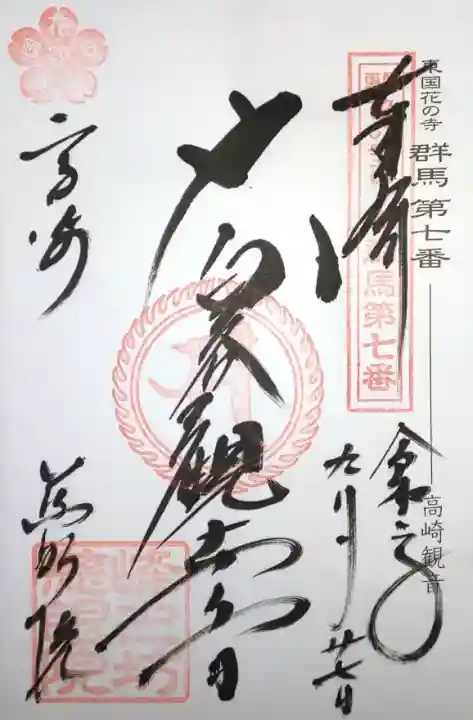 東国花の寺
群馬第七番
高崎観音
奉拝
令和元
九月廿七日
白衣観世音
高崎
慈眼院
群馬第七番